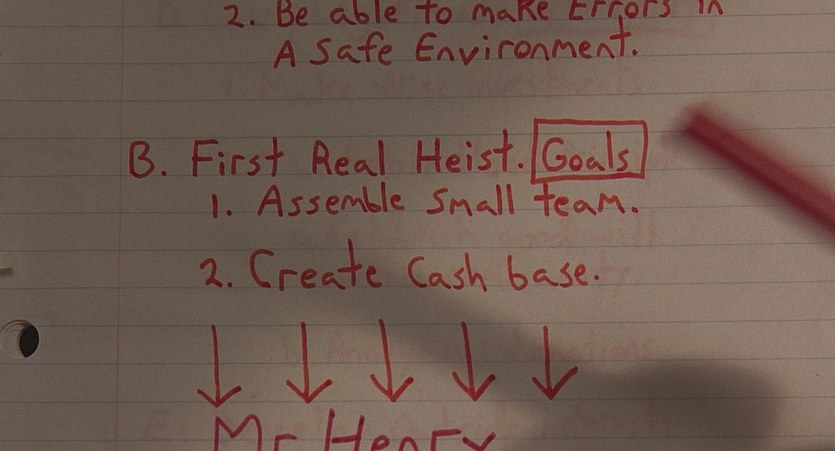 2. Be able to make Errors in
A Safe Environment.
B. First Real Heist. Goals
1. Assemble Small team.
2. Create Cash base.
Mr Henry